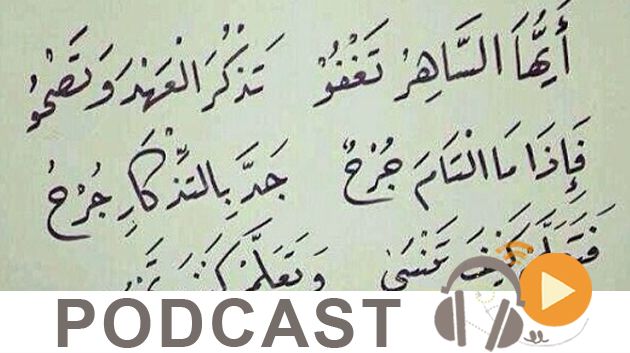 أَيُّهَا السَّاهِرُ تَغْفُو تَذْكُرُ الْعَهْدَ وَتَصْحُو
فَإِذَا مَا الْتَامَ جُرْحٌ جَدَّ بِالتِّذْكَارِ جُرْحُ
فَتَعَلَّمْ كَيْفَ تَنْسَى وَتَعَلَّمْ كَيْفَ
PODCAST